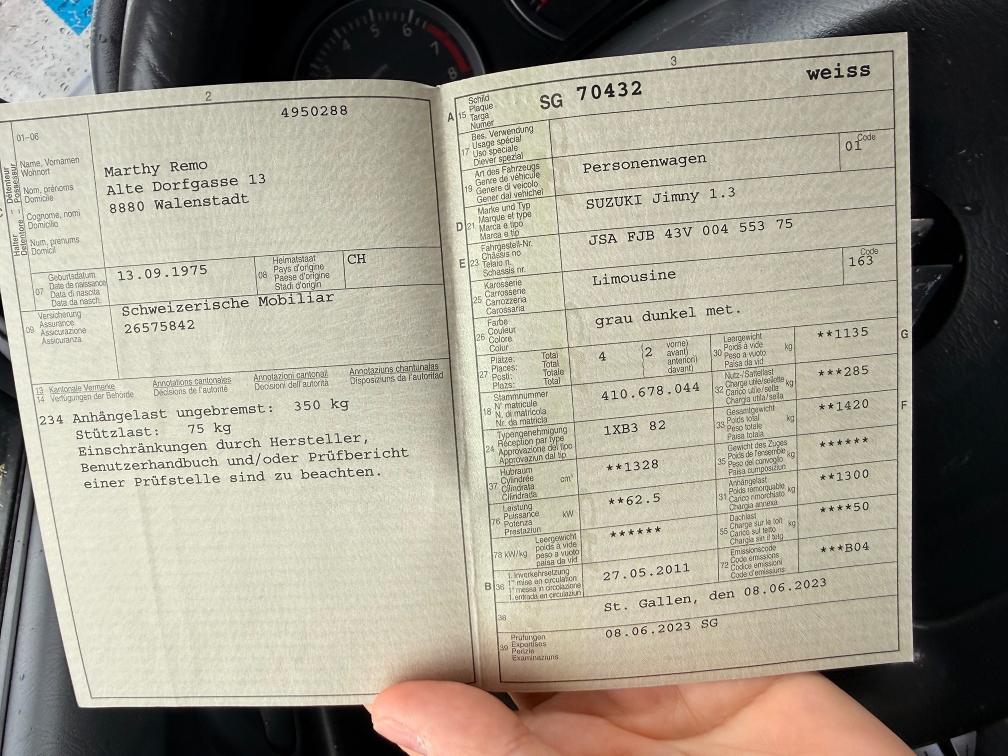 4 5 6 7 8
2
4950288
01-06
Halter Détenteur
Detentore Possessur
Name, Vornamen
Wohnort
Nom, prénoms
Domicile
Cognome, nomi
Domicilio
Num, prenums
Domicil
Marthy Remo
Alte Dorfgasse 13
8880 Walenstadt
07
Geburtsdatum
Date de naissance
Data di nascita
Data da nasch.
13.09.1975
08
Heimatstaat
Pays d'origine
Paese d'origine
Stadi d'origin
CH
09
Versicherung
Assurance
Assicurazione
Assicuranza
Schweizerische Mobiliar
26575842
13 Kantonale Vermerke
14 Verfügungen der Behörde
Annotations cantonales
Décisions de l'autorité
Annotazioni cantonali
Decisioni dell'autorità
Annotaziuns chantunalas
Disposiziuns da l'autoritad
234 Anhängelast ungebremst: 350 kg
Stützlast: 75 kg
Einschränkungen durch Hersteller,
Benutzerhandbuch und/oder Prüfbericht
einer Prüfstelle sind zu beachten.
3
A 15
Schild
Plaque
Targa
Numer
SG 70432
weiss
17
Bes. Verwendung
Usage spécial
Uso speciale
Diever spezial
19
Art des Fahrzeugs
Genre de véhicule
Genere di veicolo
Gener dal vehichel
Personenwagen
Code
01
D 21
Marke und Typ
Marque et type
Marca e tipo
Marca e tip
SUZUKI Jimny 1.3
E 23
Fahrgestell-Nr.
Châssis no
Telaio n.
Schassis nr.
JSA FJB 43V 004 553 75
25
Karosserie
Carrosserie
Carrozzeria
Carossaria
Limousine
Code
163
26
Farbe
Couleur
Colore
Colur
grau dunkel met.
27
Plätze: Total
Places: Total
Posti: Totale
Plazs: Total
4
(2
vorne)
avant)
anteriori)
davant)
30
Leergewicht
Poids à vide
Peso a vuoto
Paisa da vid
kg
**1135
G
18
Stammnummer
N° matricule
N. di matricola
Nr. da matricla
410.678.044
32
Nutz-/Sattellast
Charge utile/sellette
Carico utile/sella
Chargia utila/sella
kg
***285
24
Typengenehmigung
Réception par type
Approvazione del tipo
Approvaziun dal tip
1XB3 82
33
Gesamtgewicht
Poids total
Peso totale
Paisa totala
kg
**1420
F
37
Hubraum
Cylindrée
Cilindrata
Cilindrada
cm³
**1328
35
Gewicht des Zuges
Poids de l'ensemble
Peso del convoglio
Paisa cumposiziun
kg
******
76
Leistung
Puissance
Potenza
Prestaziun
kW
**62.5
31
Anhängelast
Poids remorquable
Carico rimorchiato
Chargia annexa
kg
**1300
78 kW/kg
Leergewicht
poids à vide
peso a vuoto
paisa da vid
******
55
Dachlast
Charge sur le toit
Carico sul tetto
Chargia sin il tetg
kg
****50
B 36
1. Inverkehrsetzung
1re mise en circulation
1a messa in circolazione
1. entrada en circulaziun
27.05.2011
72
Emissionscode
Code émissions
Codice emissioni
Code d'emissiuns
***B04
38
St. Gallen, den 08.06.2023
39
Prüfungen
Expertises
Perizie
Examinaziuns
08.06.2023 SG